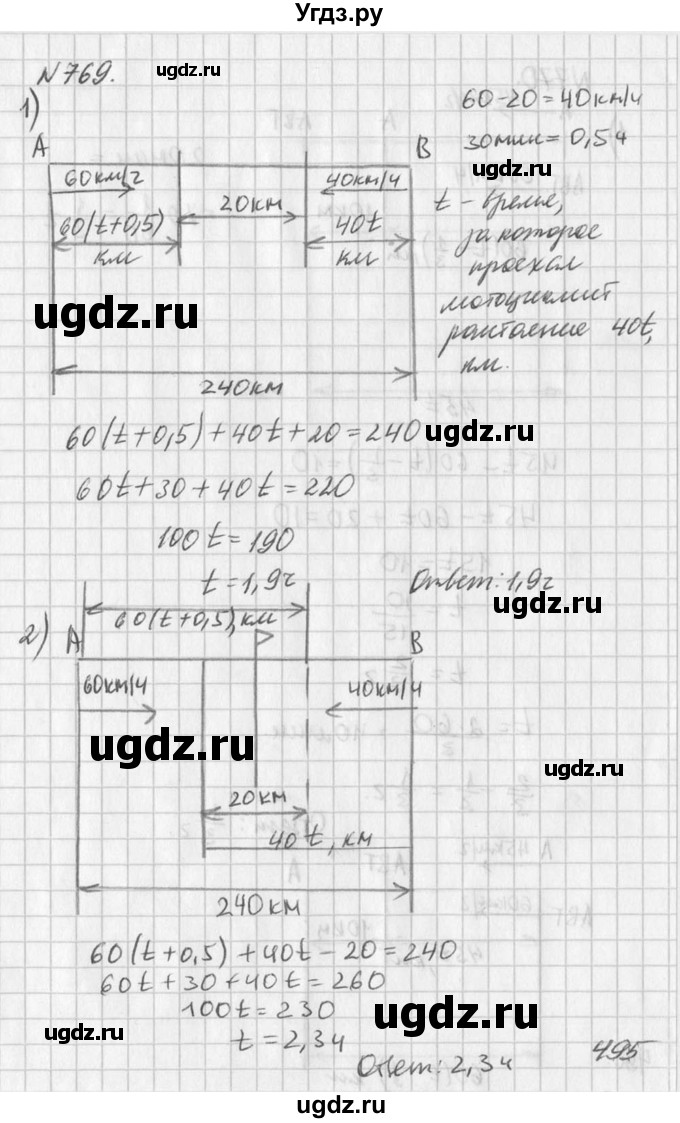 Угдз.ру
N 769.
ugdz.ru
ugdz.ru
1)
60-20=40км/ч
30мин=0,5ч
A
B
60км/ч
20км
40км/ч
60(t+0,5)
км
40t
км
t - время,
за которое
проехал
мотоциклист
расстояние 40t,
км.
ugdz.ru
ugdz.ru
240км
60(t+0,5)+40t+20=240
ugdz.ru
60t+30+40t=220
100t=190
t=1,9ч
Ответ: 1,9ч
2)
60(t+0,5), км
A
B
60км/ч
40км/ч
ugdz.ru
ugdz.ru
20км
40t, км
240км
60(t+0,5)+40t-20=240
60t+30+40t=260
100t=230
t=2,3ч
Ответ: 2,3ч
ugdz.ru
ugdz.ru
495
ugdz.ru